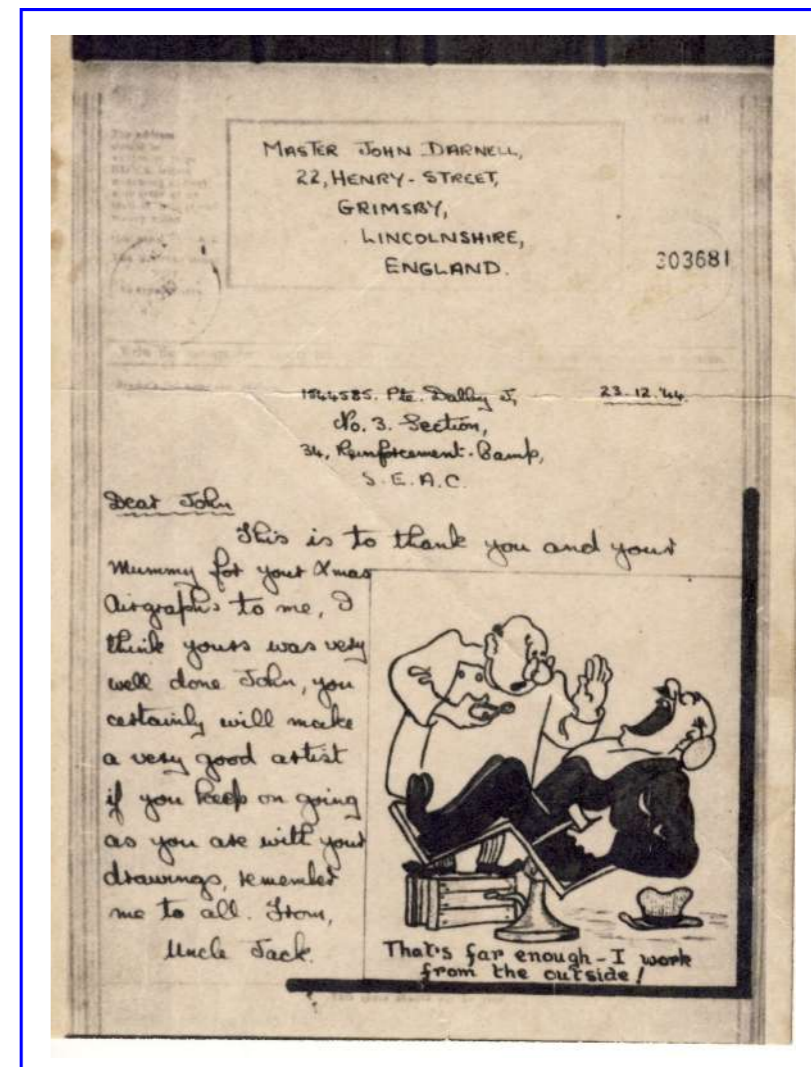 MASTER JOHN DARNELL,
22, HENRY-STREET,
GRIMSBY,
LINCOLNSHIRE,
ENGLAND.
303681
1544585. Pte. Dalby J,
23.12.'44.
No. 3. Section,
34, Reinforcement-Camp,
S.E.A.C.
Dear John
This is to thank you and your
Mummy for your Xmas
Airgraphs to me, I
think yours was very
well done John, you
certainly will make
a very good artist
if you keep on going
as you are with your
drawings, remember
me to all. From,
Uncle Jack.
That's far enough - I work
from the outside!